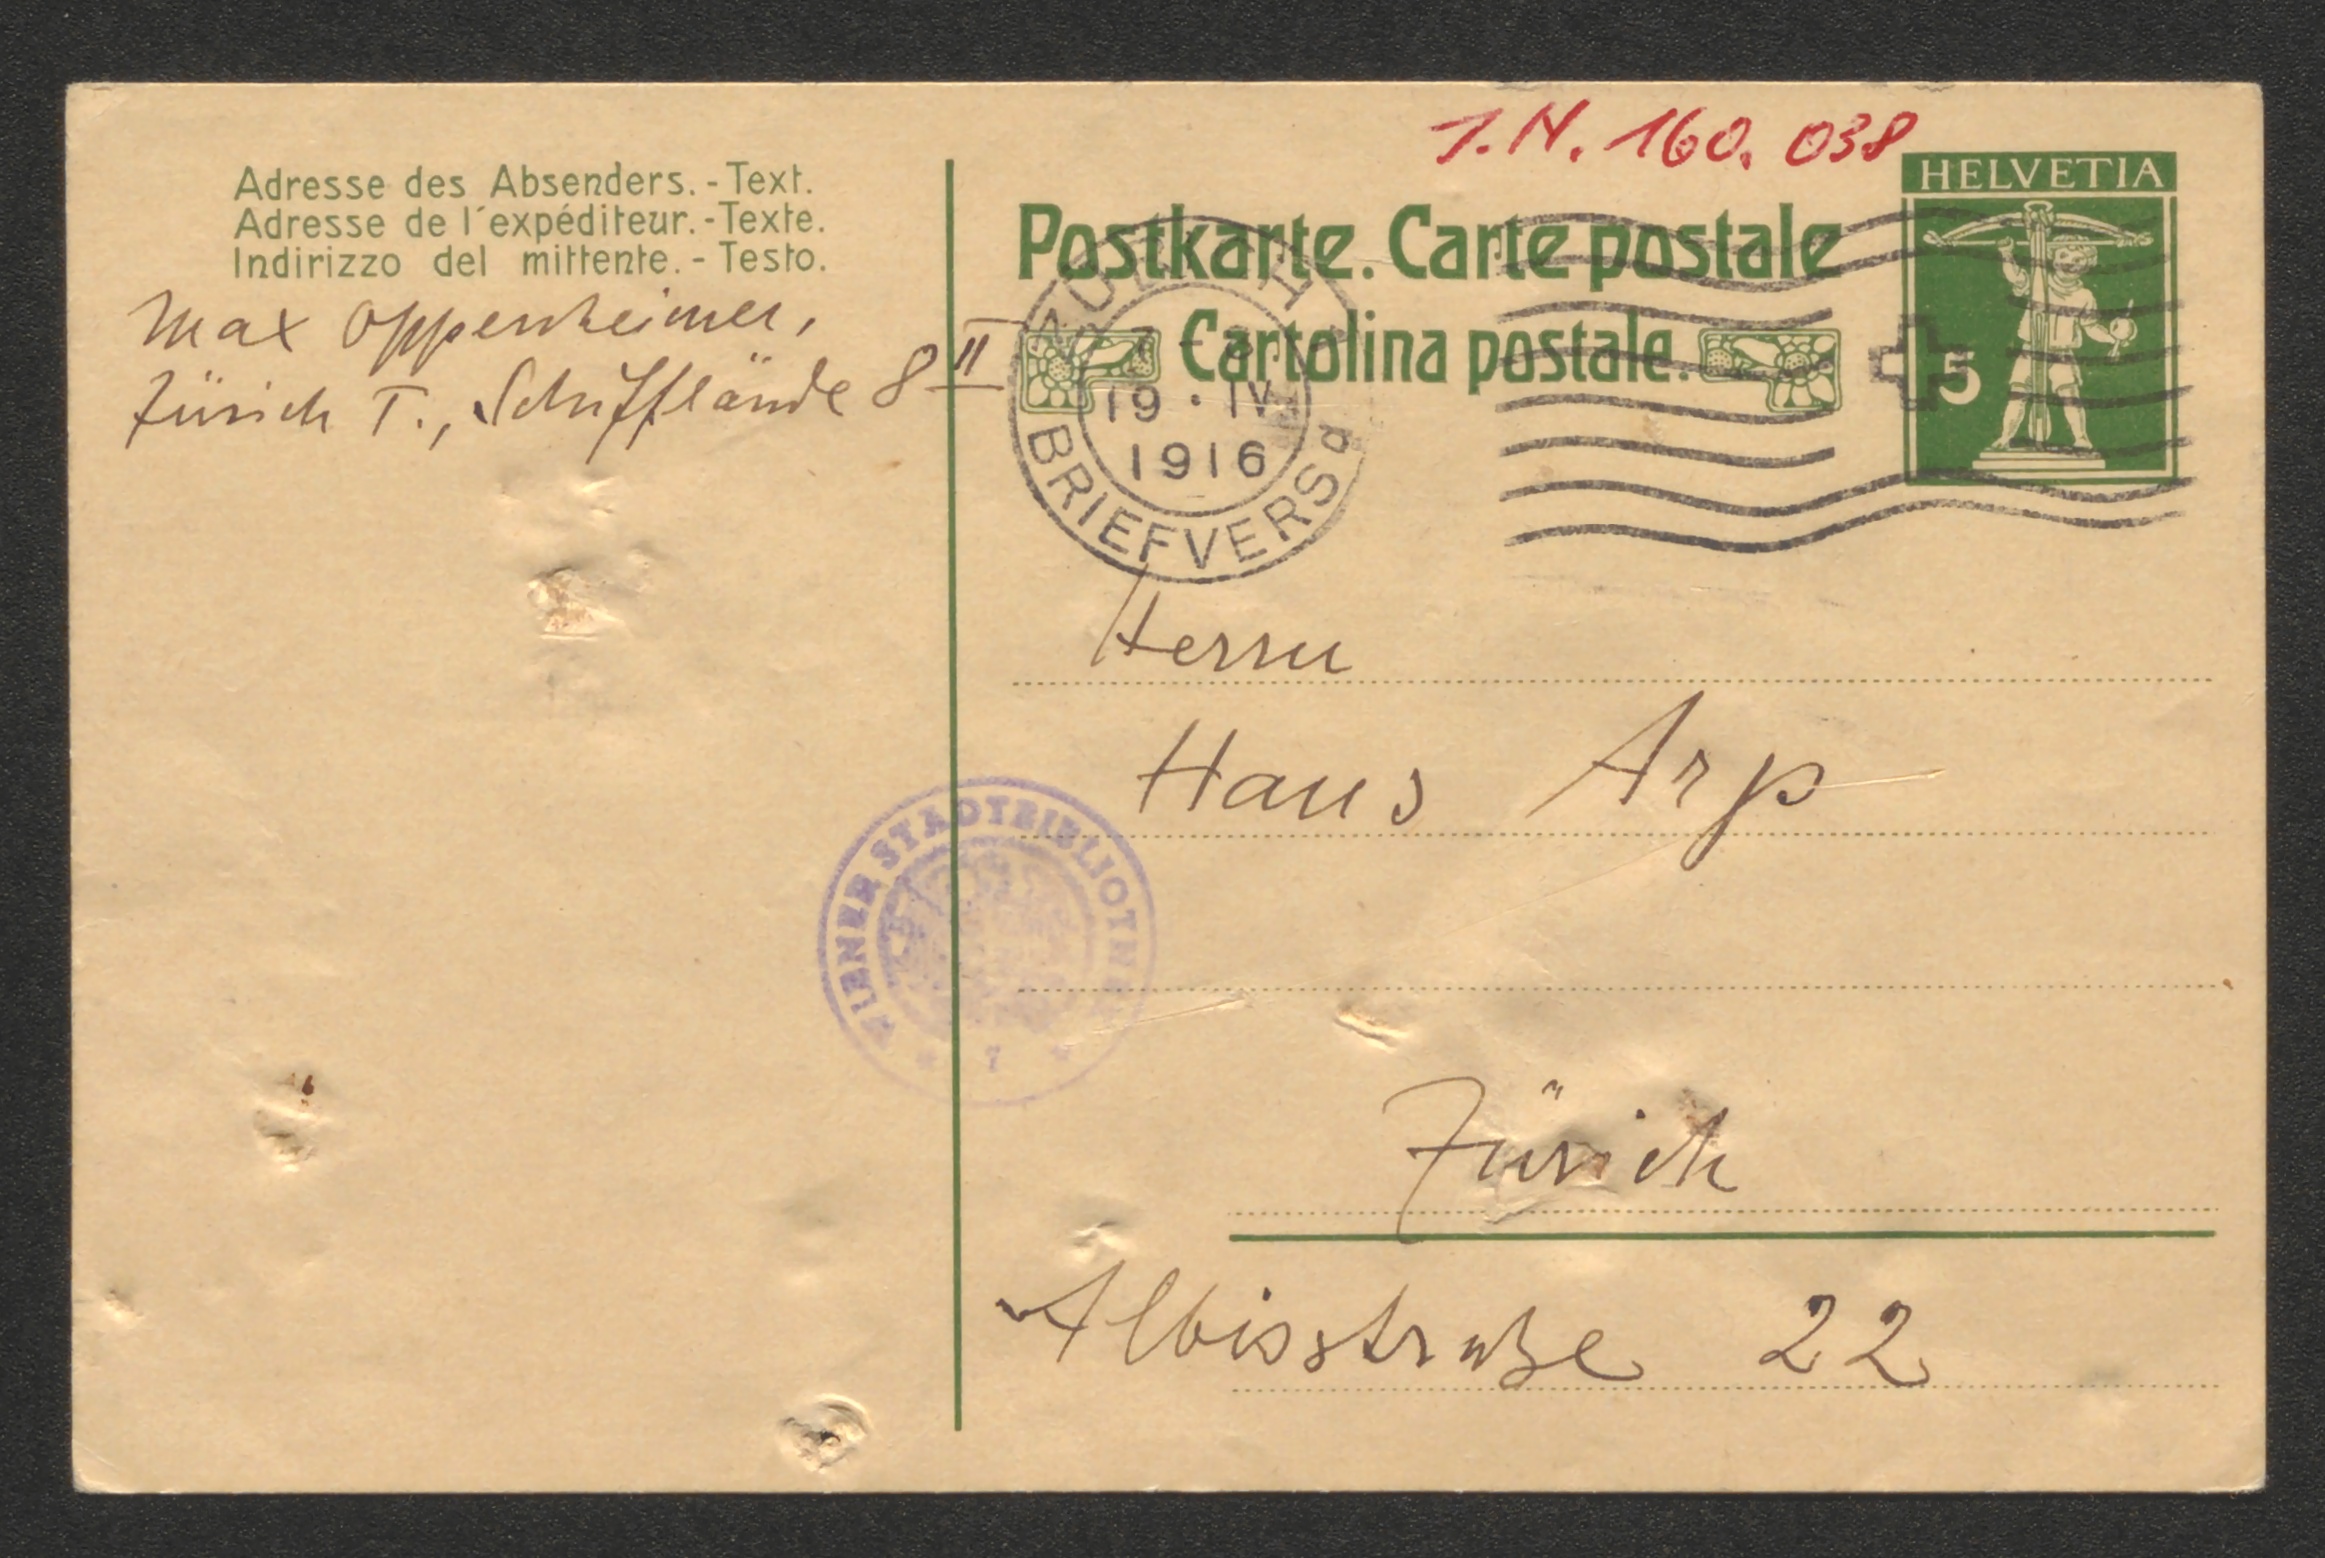 Adresse des Absenders. - Text.
Adresse de l'expéditeur. - Texte.
Indirizzo del mittente. - Testo.
Max Oppenheimer,
Zürich I., Schifflände 8 II
I.N. 160.038
HELVETIA
5
Postkarte. Carte postale
Cartolina postale.
ZÜRICH
19·IV
1916
BRIEFVERSd
Herrn
Hans Arp
WIENER STADTBIBLIOTHEK
* 7 *
Zürich
Albisstraße 22